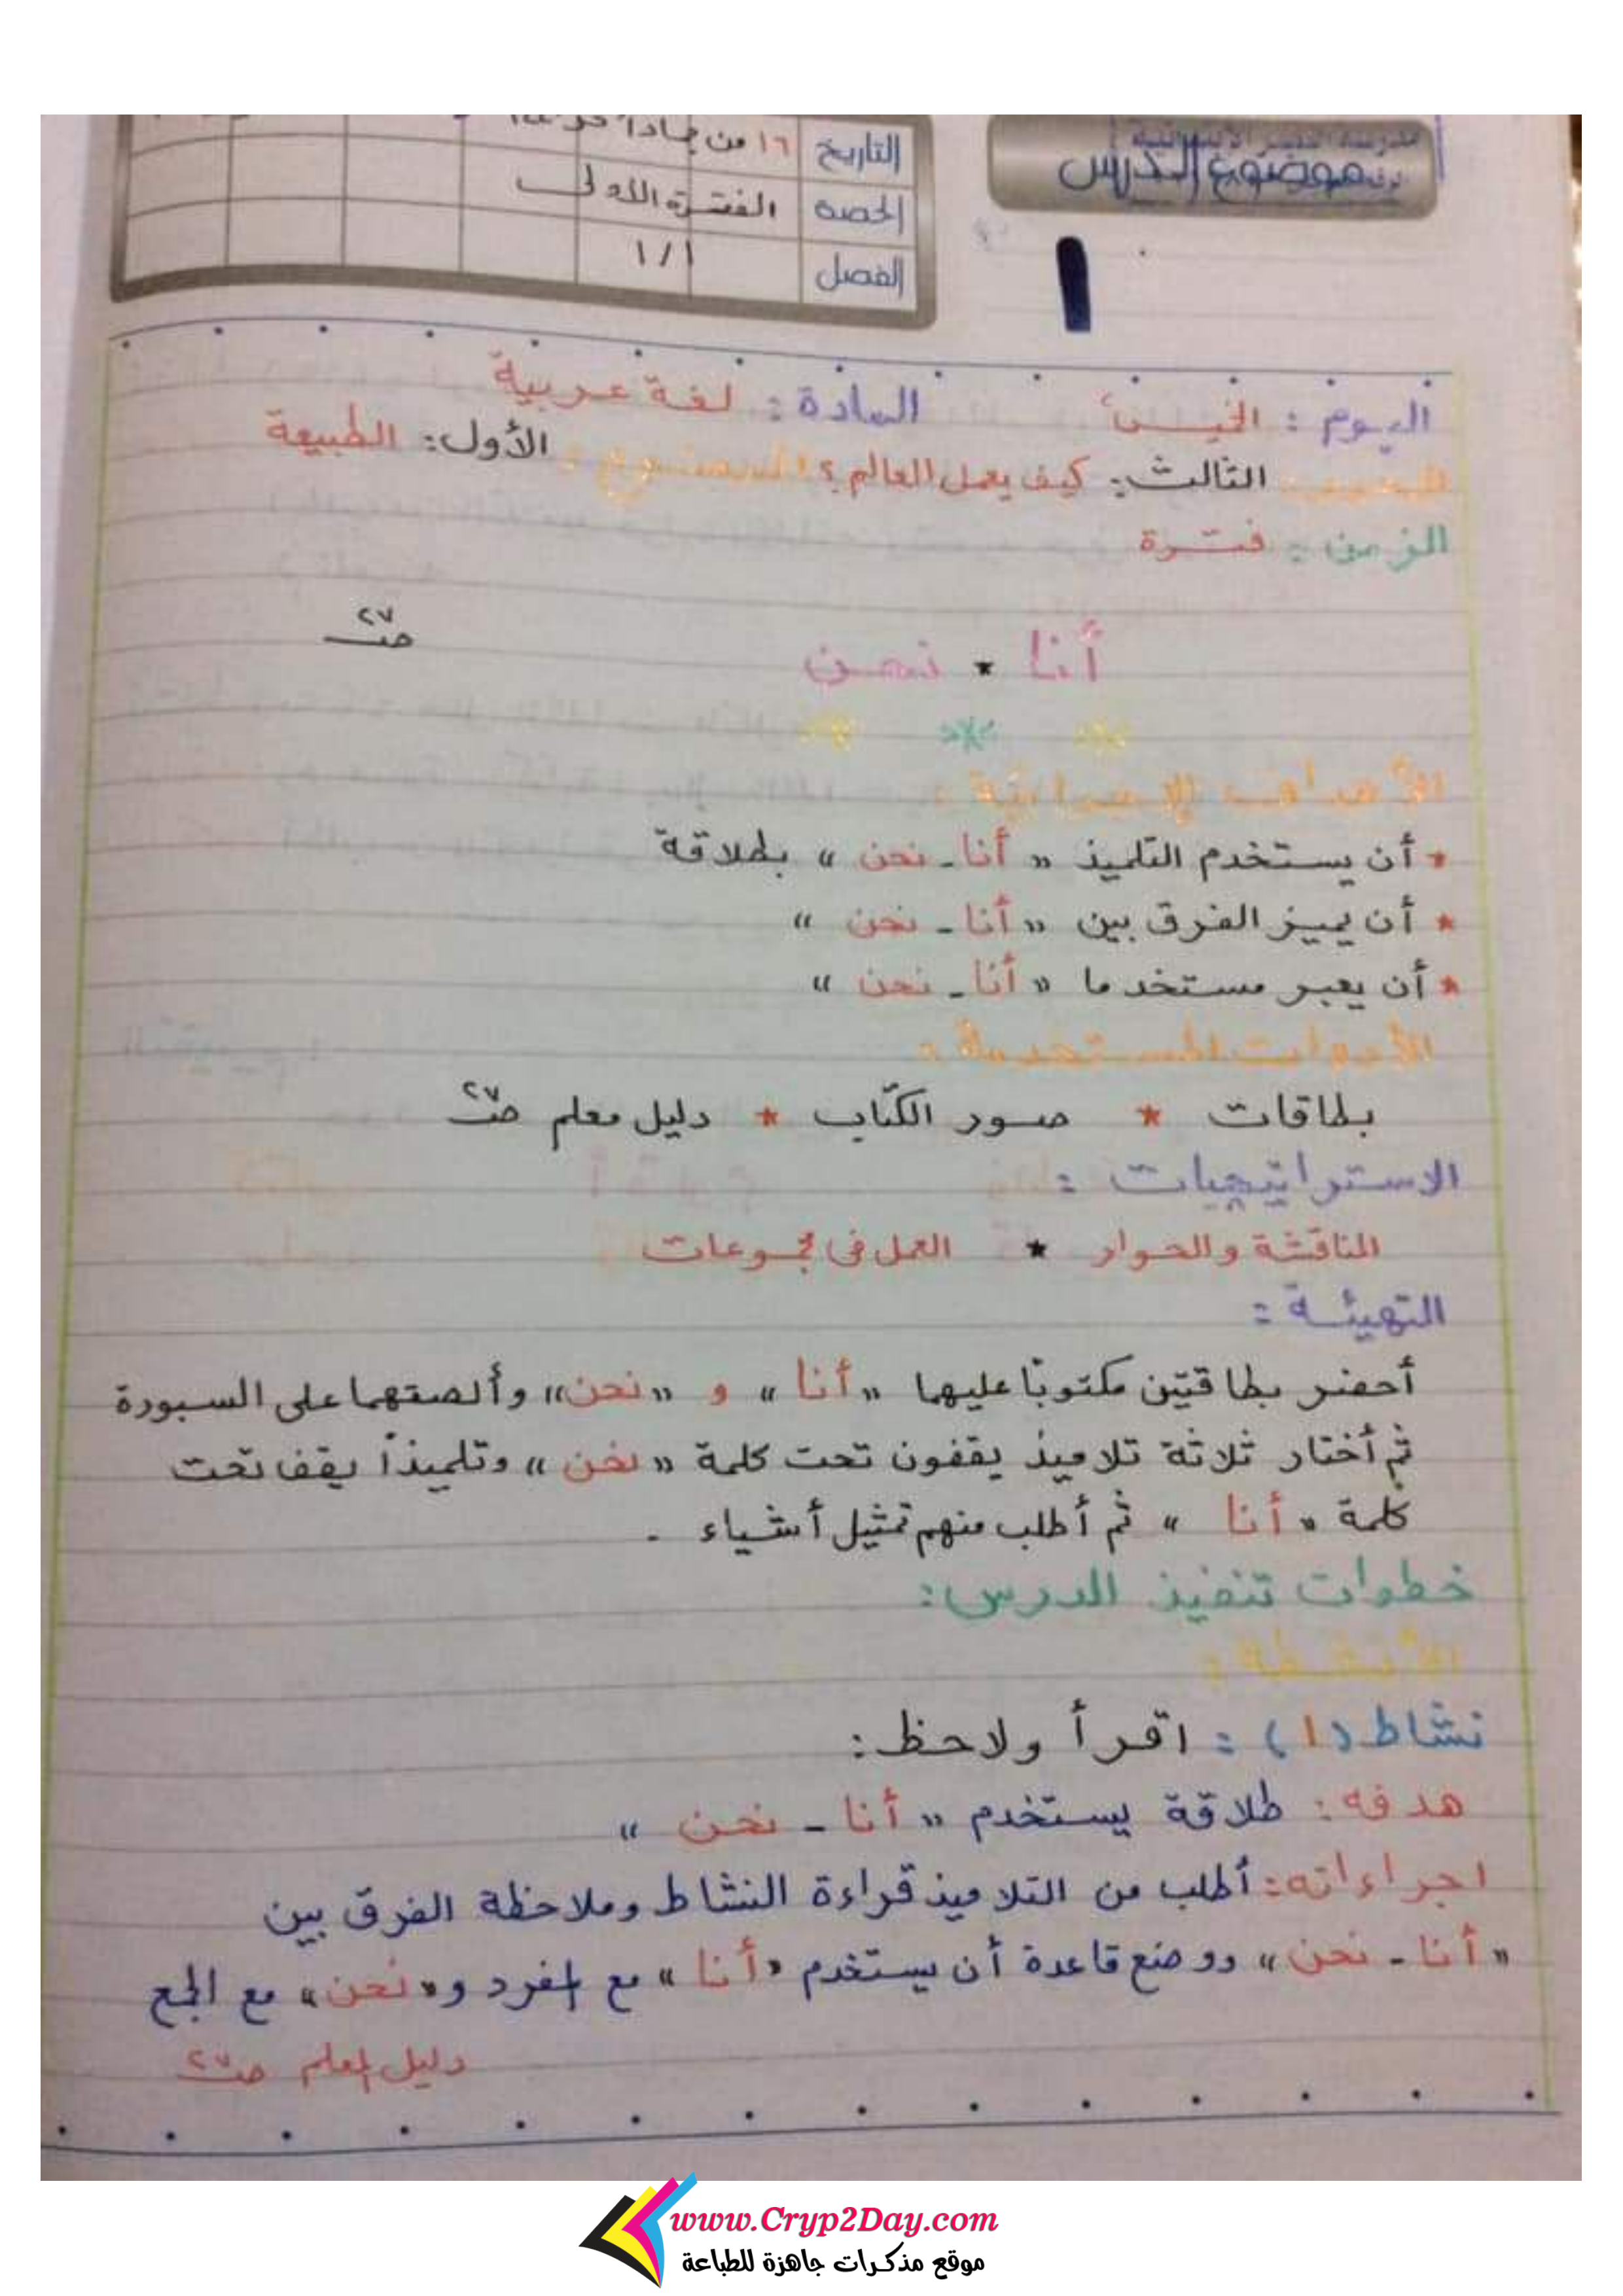 موضوع الدرس
التاريخ ١٦ من جمادا
الحصة الفترة الأولى
الفصل ١/١
١
اليوم : الخميس المادة : لغة عربية
المحور الثالث : كيف يعمل العالم ؟ الموضوع : الأول : الطبيعة
الزمن : فترة
أنا * نحن ص٢٧
الأهداف الإجرائية :
* أن يستخدم التلميذ « أنا - نحن » بطلاقة
* أن يميز الفرق بين « أنا - نحن »
* أن يعبر مستخدما « أنا - نحن »
الأدوات المستخدمة :
بطاقات * صور الكتاب * دليل معلم ص٢٧
الاستراتيجيات :
المناقشة والحوار * العمل فى مجموعات
التهيئة :
أحضر بطاقتين مكتوبًا عليهما « أنا » و « نحن » وألصقهما على السبورة
ثم أختار ثلاثة تلاميذ يقفون تحت كلمة « نحن » وتلميذاً يقف تحت
كلمة « أنا » ثم أطلب منهم تمثيل أشياء .
خطوات تنفيذ الدرس :
الأنشطة :
نشاط (١) : اقرأ ولاحظ :
هدفه : طلاقة يستخدم « أنا - نحن »
اجراءاته : أطلب من التلاميذ قراءة النشاط وملاحظة الفرق بين
« أنا - نحن » ووضع قاعدة أن يستخدم « أنا » مع المفرد و « نحن » مع الجمع
دليل المعلم ص٢٧
www.Cryp2Day.com
موقع مذكرات جاهزة للطباعة